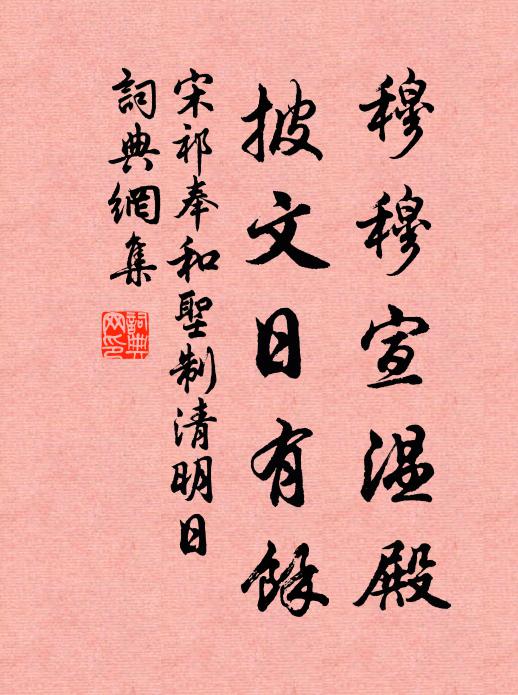 穆穆宣温殿
披文日有餘
宋祁奉和聖制清明日
詞典網集
詞典网印